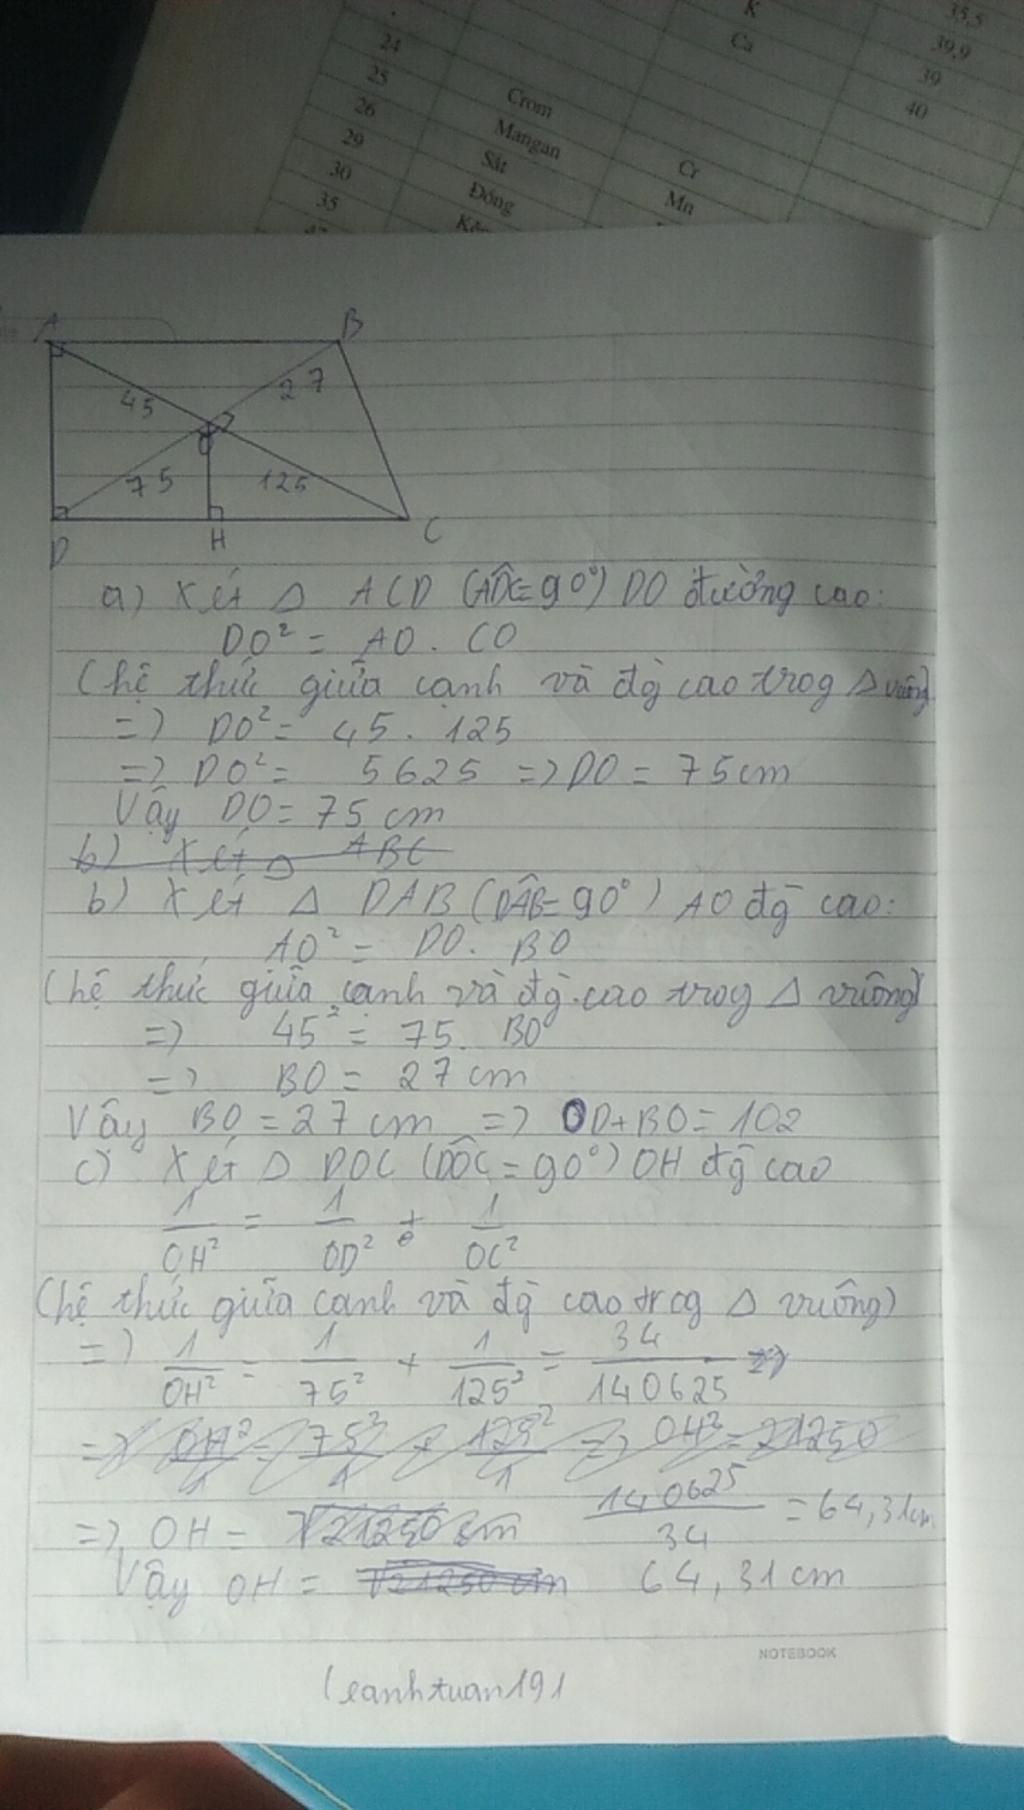 K
35,5
Ca
39,9
24
39
25
Crom
40
26
Mangan
29
Sắt
Cr
30
Đồng
Mn
35
A B
45 27
O
75 125
D H C
a) Xét Δ ACD (ADC = 90°) DO đường cao:
DO² = AO . CO
(hệ thức giữa cạnh và đg cao trog Δ vuông)
=> DO² = 45 . 125
=> DO² = 5625 => DO = 75 cm
Vậy DO = 75 cm
b) Xét Δ ABC
b) Xét Δ DAB (DAB = 90°) AO đg cao:
AO² = DO . BO
(hệ thức giữa cạnh và đg cao trog Δ vuông)
=> 45² = 75 . BO
=> BO = 27 cm
Vậy BO = 27 cm => OD + BO = 102
c) Xét Δ DOC (DOC = 90°) OH đg cao
1/OH² = 1/OD² + 1/OC²
(hệ thức giữa cạnh và đg cao trog Δ vuông)
=> 1/OH² = 1/75² + 1/125² = 34/140625 =>
=> OH²/1 = 75²/1 + 125²/1 => OH² = 21250
=> OH = √21250 cm 140625/34 = 64,31cm
Vậy OH = √21250 cm 64,31 cm
NOTEBOOK
leanhtuan191